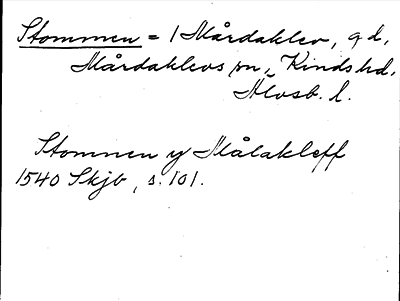 Stommen = 1 Mårdaklev, gd,
Mårdaklevs sn, Kinds hd,
Älvsb. l.
Stommen y Målakleff
1540 Skjb, s. 101.